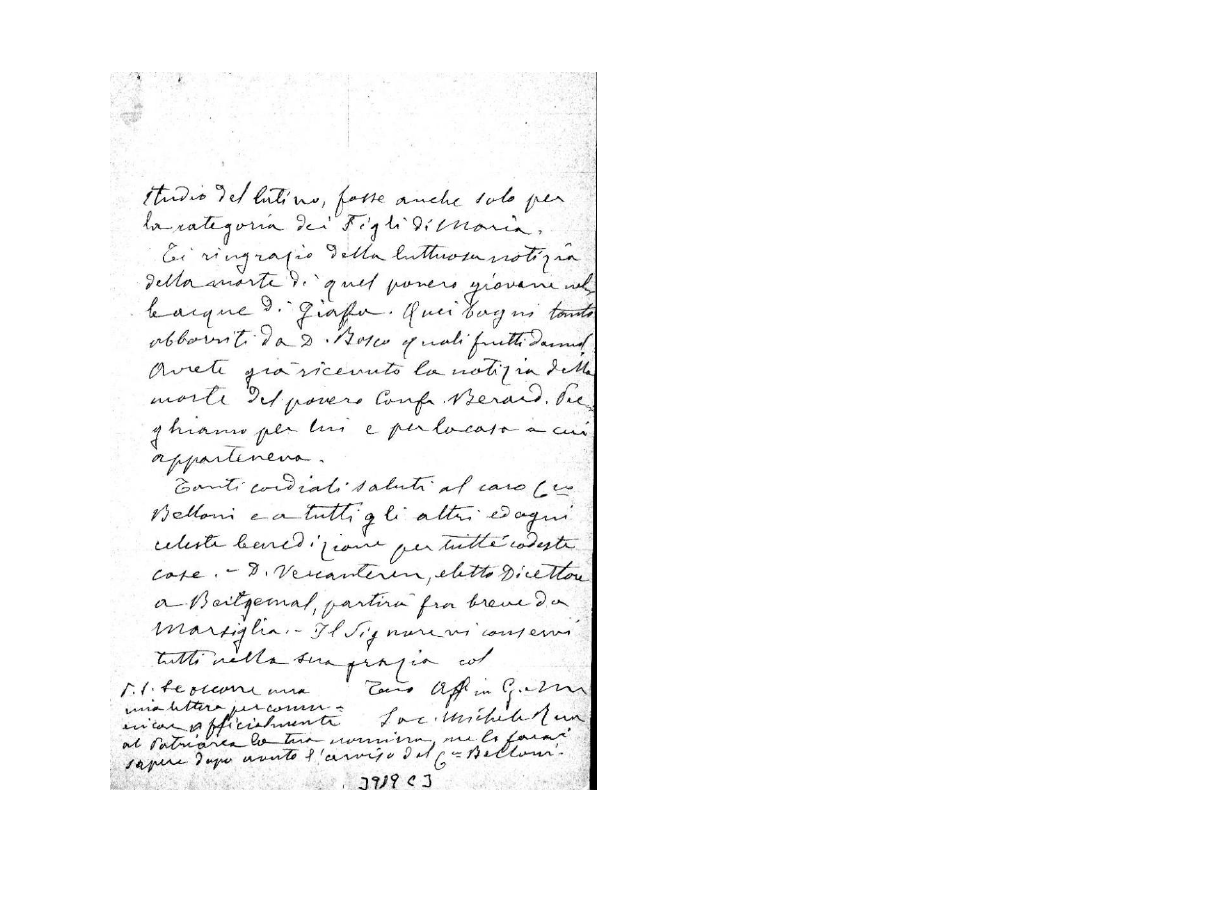 studio del latino, fosse anche solo per
la categoria dei Figli di Maria.
Ti ringrazio della luttuosa notizia
della morte di quel povero giovane nel
le acque di Giaffa. Quei bagni tanto
abborriti da D. Bosco quali frutti danno!
Avrete già ricevuto la notizia della
morte del povero Confr. Berard. Pre-
ghiamo per lui e per la casa a cui
apparteneva.
Tanti cordiali saluti al caro Cco
Belloni e a tutti gli altri ed ogni
celeste benedizione per tutte codeste
case. - D. Vercauteren, eletto Direttore
a Beitgemal, partirà fra breve da
Marsiglia. - Il Signore vi conservi
tutti nella sua grazia col
Tuo Aff in G. e M
Sac. Michele Rua
P.S. Se occorre una
mia lettera per comu-
nicare officialmente
al Patriarca la tua nomina, me lo farai
sapere dopo avuto l'avviso del Cco Belloni.
3919 C 3